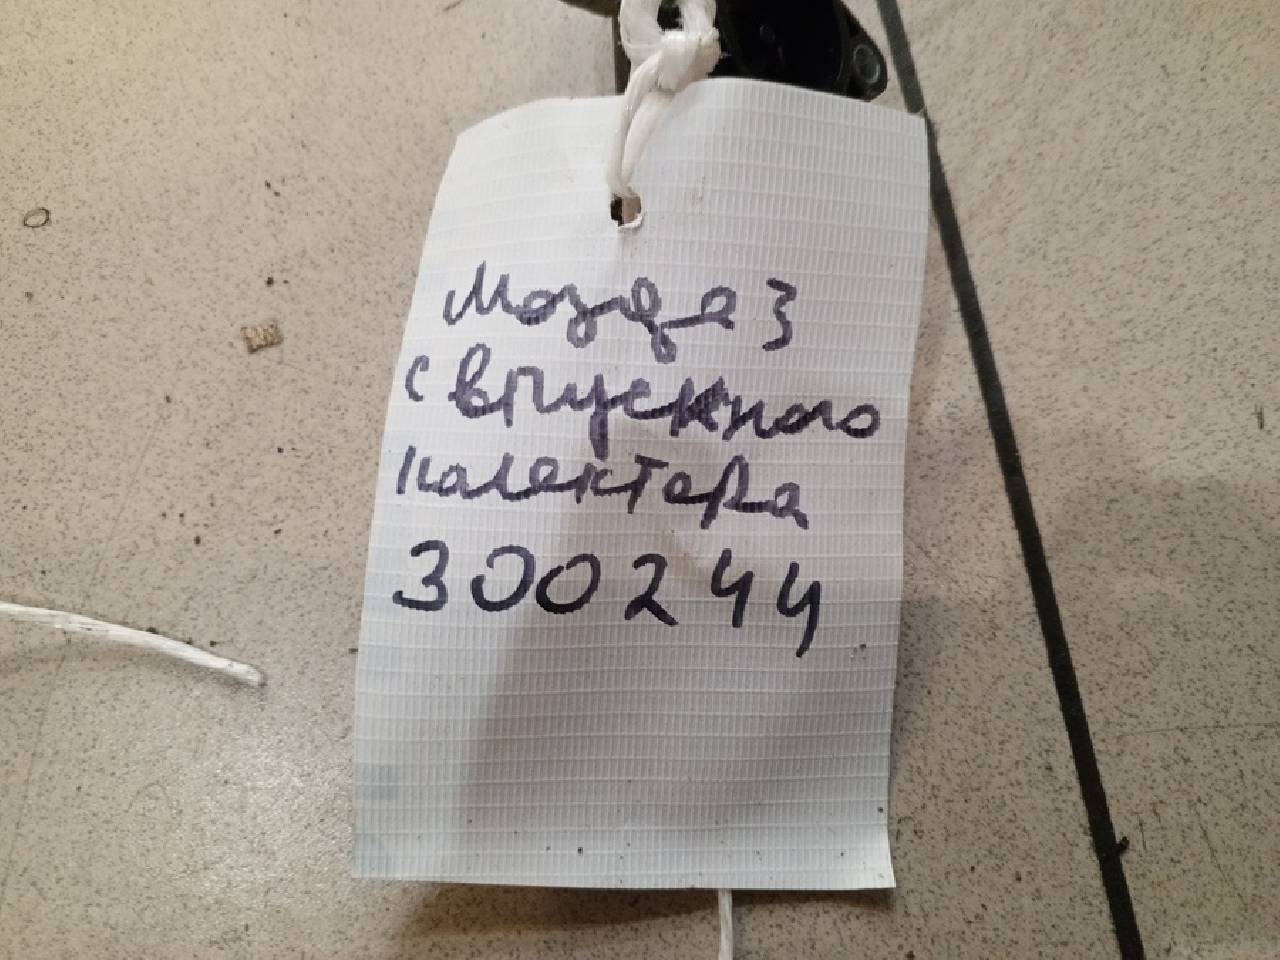 Мозда 3
с впускного
калектора
300244